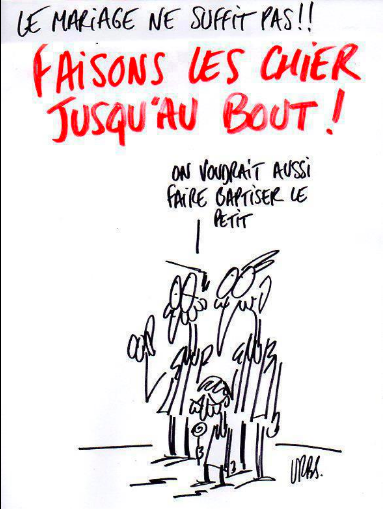 LE MARIAGE NE SUFFIT PAS!!
FAISONS LES CHIER
JUSQU'AU BOUT !
ON VOUDRAIT AUSSI
FAIRE BAPTISER LE
PETIT
URBS.